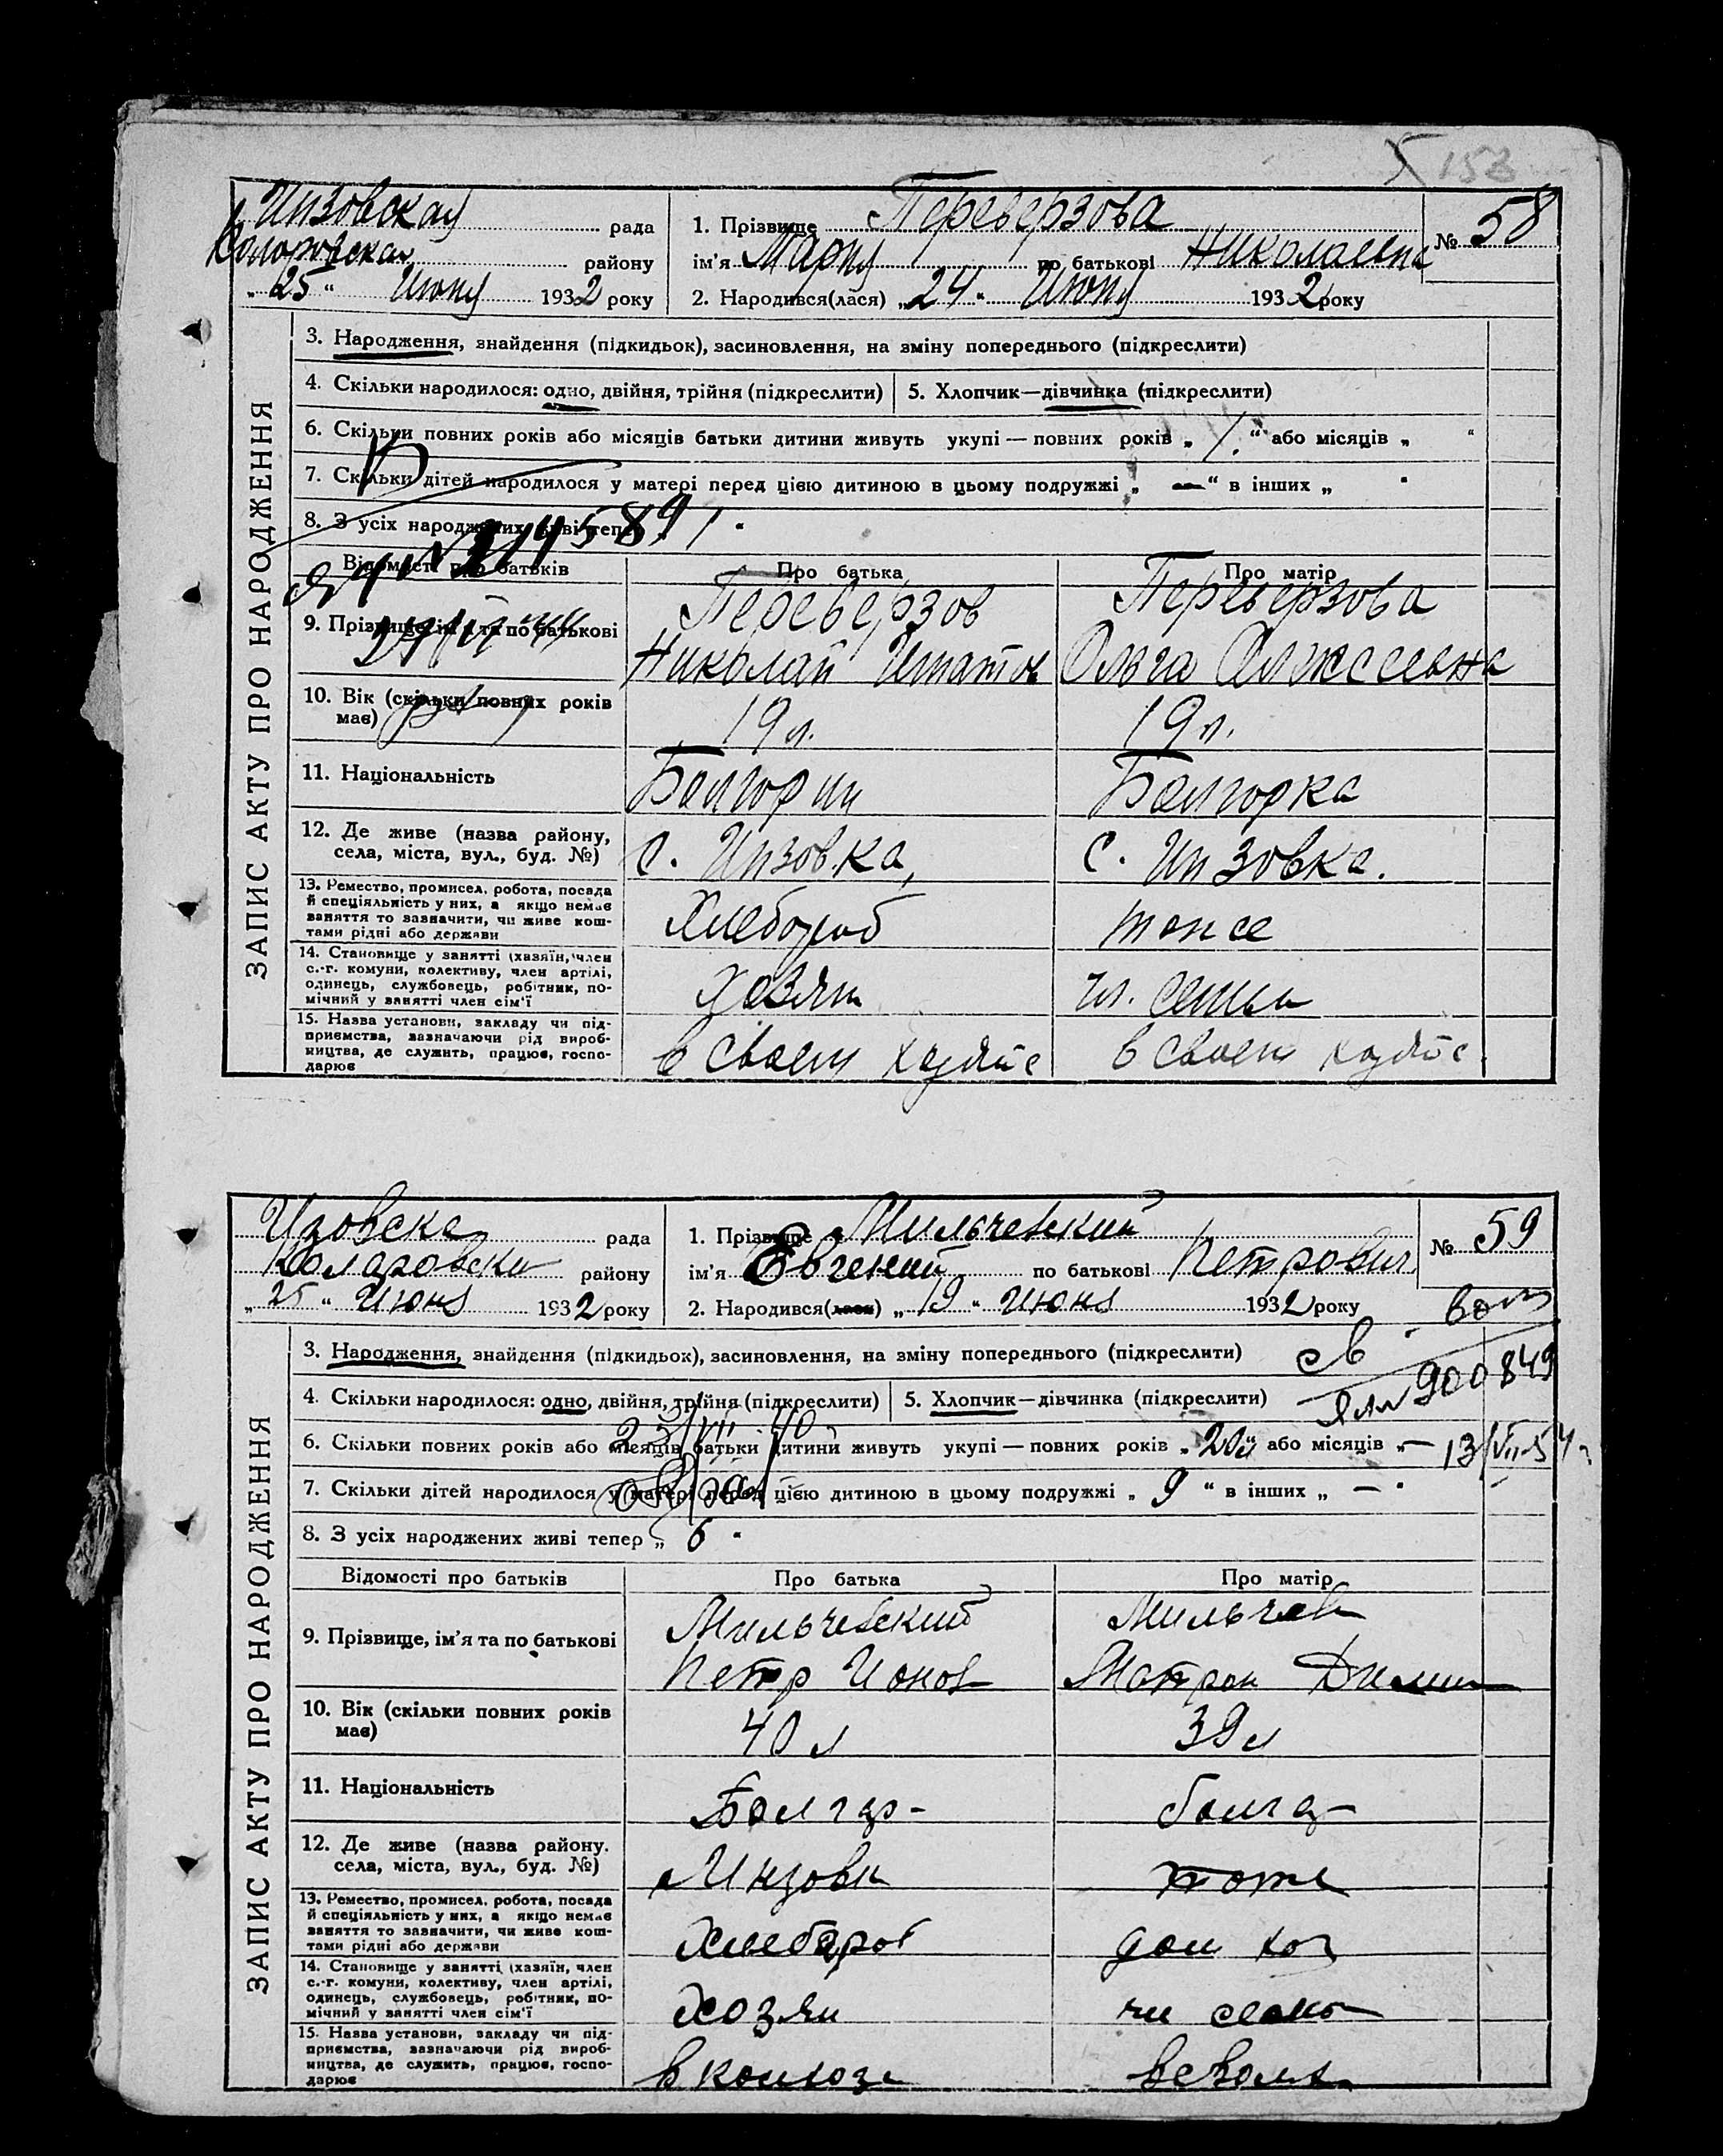 Х 153
Инзовская рада
Коларовская району
„25“ Июня 1932 року
1. Прізвище Переверзова
ім'я Мария по батькові Николаевна
№ 58
2. Народився(лася) „24“ Июня 1932 року
ЗАПИС АКТУ ПРО НАРОДЖЕННЯ
3. Народження, знайдення (підкидьок), засиновлення, на зміну попереднього (підкреслити)
4. Скільки народилося: одно, двійня, трійня (підкреслити) 5. Хлопчик—дівчинка (підкреслити)
6. Скільки повних років або місяців батьки дитини живуть укупі — повних років „ 1. “ або місяців „ “
7. Скільки дітей народилося у матері перед цією дитиною в цьому подружжі „ — “ в інших „ “
8. З усіх народжених живі тепер
Відомості про батьків Про батька Про матір
9. Прізвище, ім'я та по батькові
Переверзов
Николай Игнатов
Переверзова
Ольга Алексеевна
10. Вік (скільки повних років
має)
19 л. 19 л.
11. Національність Болгорин Болгорка
12. Де живе (назва району,
села, міста, вул., буд. №)
с. Инзовка, с. Инзовка.
13. Ремество, промисел, робота, посада
й спеціяльність у них, а якщо немає
заняття то зазначити, чи живе кош-
тами рідні або держави
Хлебороб тоже
14. Становище у занятті (хазяїн, член
с.-г. комуни, колективу, член артілі,
одинець, службовець, робітник, по-
мічний у занятті член сім'ї
Хозяин чл. семьи
15. Назва установи, закладу чи під-
приємства, зазначаючи рід вироб-
ництва, де служить, працює, госпо-
дарює
в своем хозяйс в своем хозяйс.
Изовска рада
Коларовски району
„25“ Июня 1932 року
1. Прізвище Мильчевский
ім'я Евгений по батькові Петрович
№ 59
2. Народився(лася) „19“ Июня 1932 року
ЗАПИС АКТУ ПРО НАРОДЖЕННЯ
3. Народження, знайдення (підкидьок), засиновлення, на зміну попереднього (підкреслити)
св
900849
4. Скільки народилося: одно, двійня, трійня (підкреслити) 5. Хлопчик—дівчинка (підкреслити)
23/VII 40
6. Скільки повних років або місяців батьки дитини живуть укупі — повних років „ 20 “ або місяців „ —
13/VII-54 г
7. Скільки дітей народилося у матері перед цією дитиною в цьому подружжі „ 9 “ в інших „ — “
8. З усіх народжених живі тепер „ 6 “
Відомості про батьків Про батька Про матір
9. Прізвище, ім'я та по батькові
Мильчевский
Петр Ионов
Мильчев
Матрон Дими
10. Вік (скільки повних років
має)
40 л 39 л
11. Національність Болгар- болга-
12. Де живе (назва району.
села, міста, вул., буд. №)
Инзовк тоже
13. Ремество, промисел, робота, посада
й спеціяльність у них, а якщо немає
заняття то зазначити, чи живе кош-
тами рідні або держави
Хлебороб дом хоз
14. Становище у занятті (хазяїн, член
с.-г. комуни, колективу, член артілі,
одинець, службовець, робітник, по-
мічний у занятті член сім'ї
Хозяи чл семьи
15. Назва установи, закладу чи під-
приємства, зазначаючи рід вироб-
ництва, де служить, працює, госпо-
дарює
в колхозе в своем